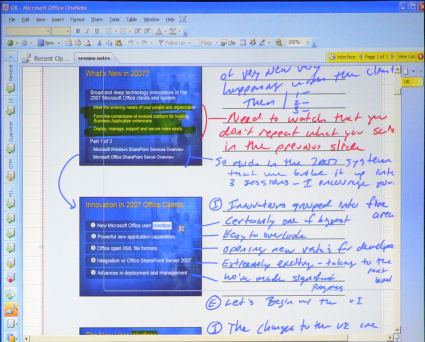 OK - Microsoft Office OneNote
File Edit View Insert Format Share Tools Table Window Help
New
100%
Recent Op... session notes
interface Page 1 of 1 View List
What's New in 2007?
Broad and deep technology innovations in the
2007 Microsoft Office clients and system
Meet the evolving needs of your people and organization
Form the cornerstone of evolved platform for building
Business Application extensions
Deploy, manage, support and secure more easily
Part 1 of 3
Microsoft Windows SharePoint Services Overview
Microsoft Office SharePoint Server Overview
of very new very
happening when the client
Then 1
2
3
Need to watch that you
don't repeat what you said
in the previous slide
So much in the 2007 System
that we broke it up into
3 sessions - I encourage you
Innovation in 2007 Office Clients
New Microsoft Office user interface
Powerful new application capabilities
Office open XML file formats
Integration w/ Office SharePoint Server 2007
Advances in deployment and management
I Innovations grouped into five
areas
Certainly one of biggest
Easy to overlook
opening new vista's for develope
Extremely exciting - taking to the
next level
we've made significant
Progress
E Let's Begin w/ the UI
I The changes to the UI are